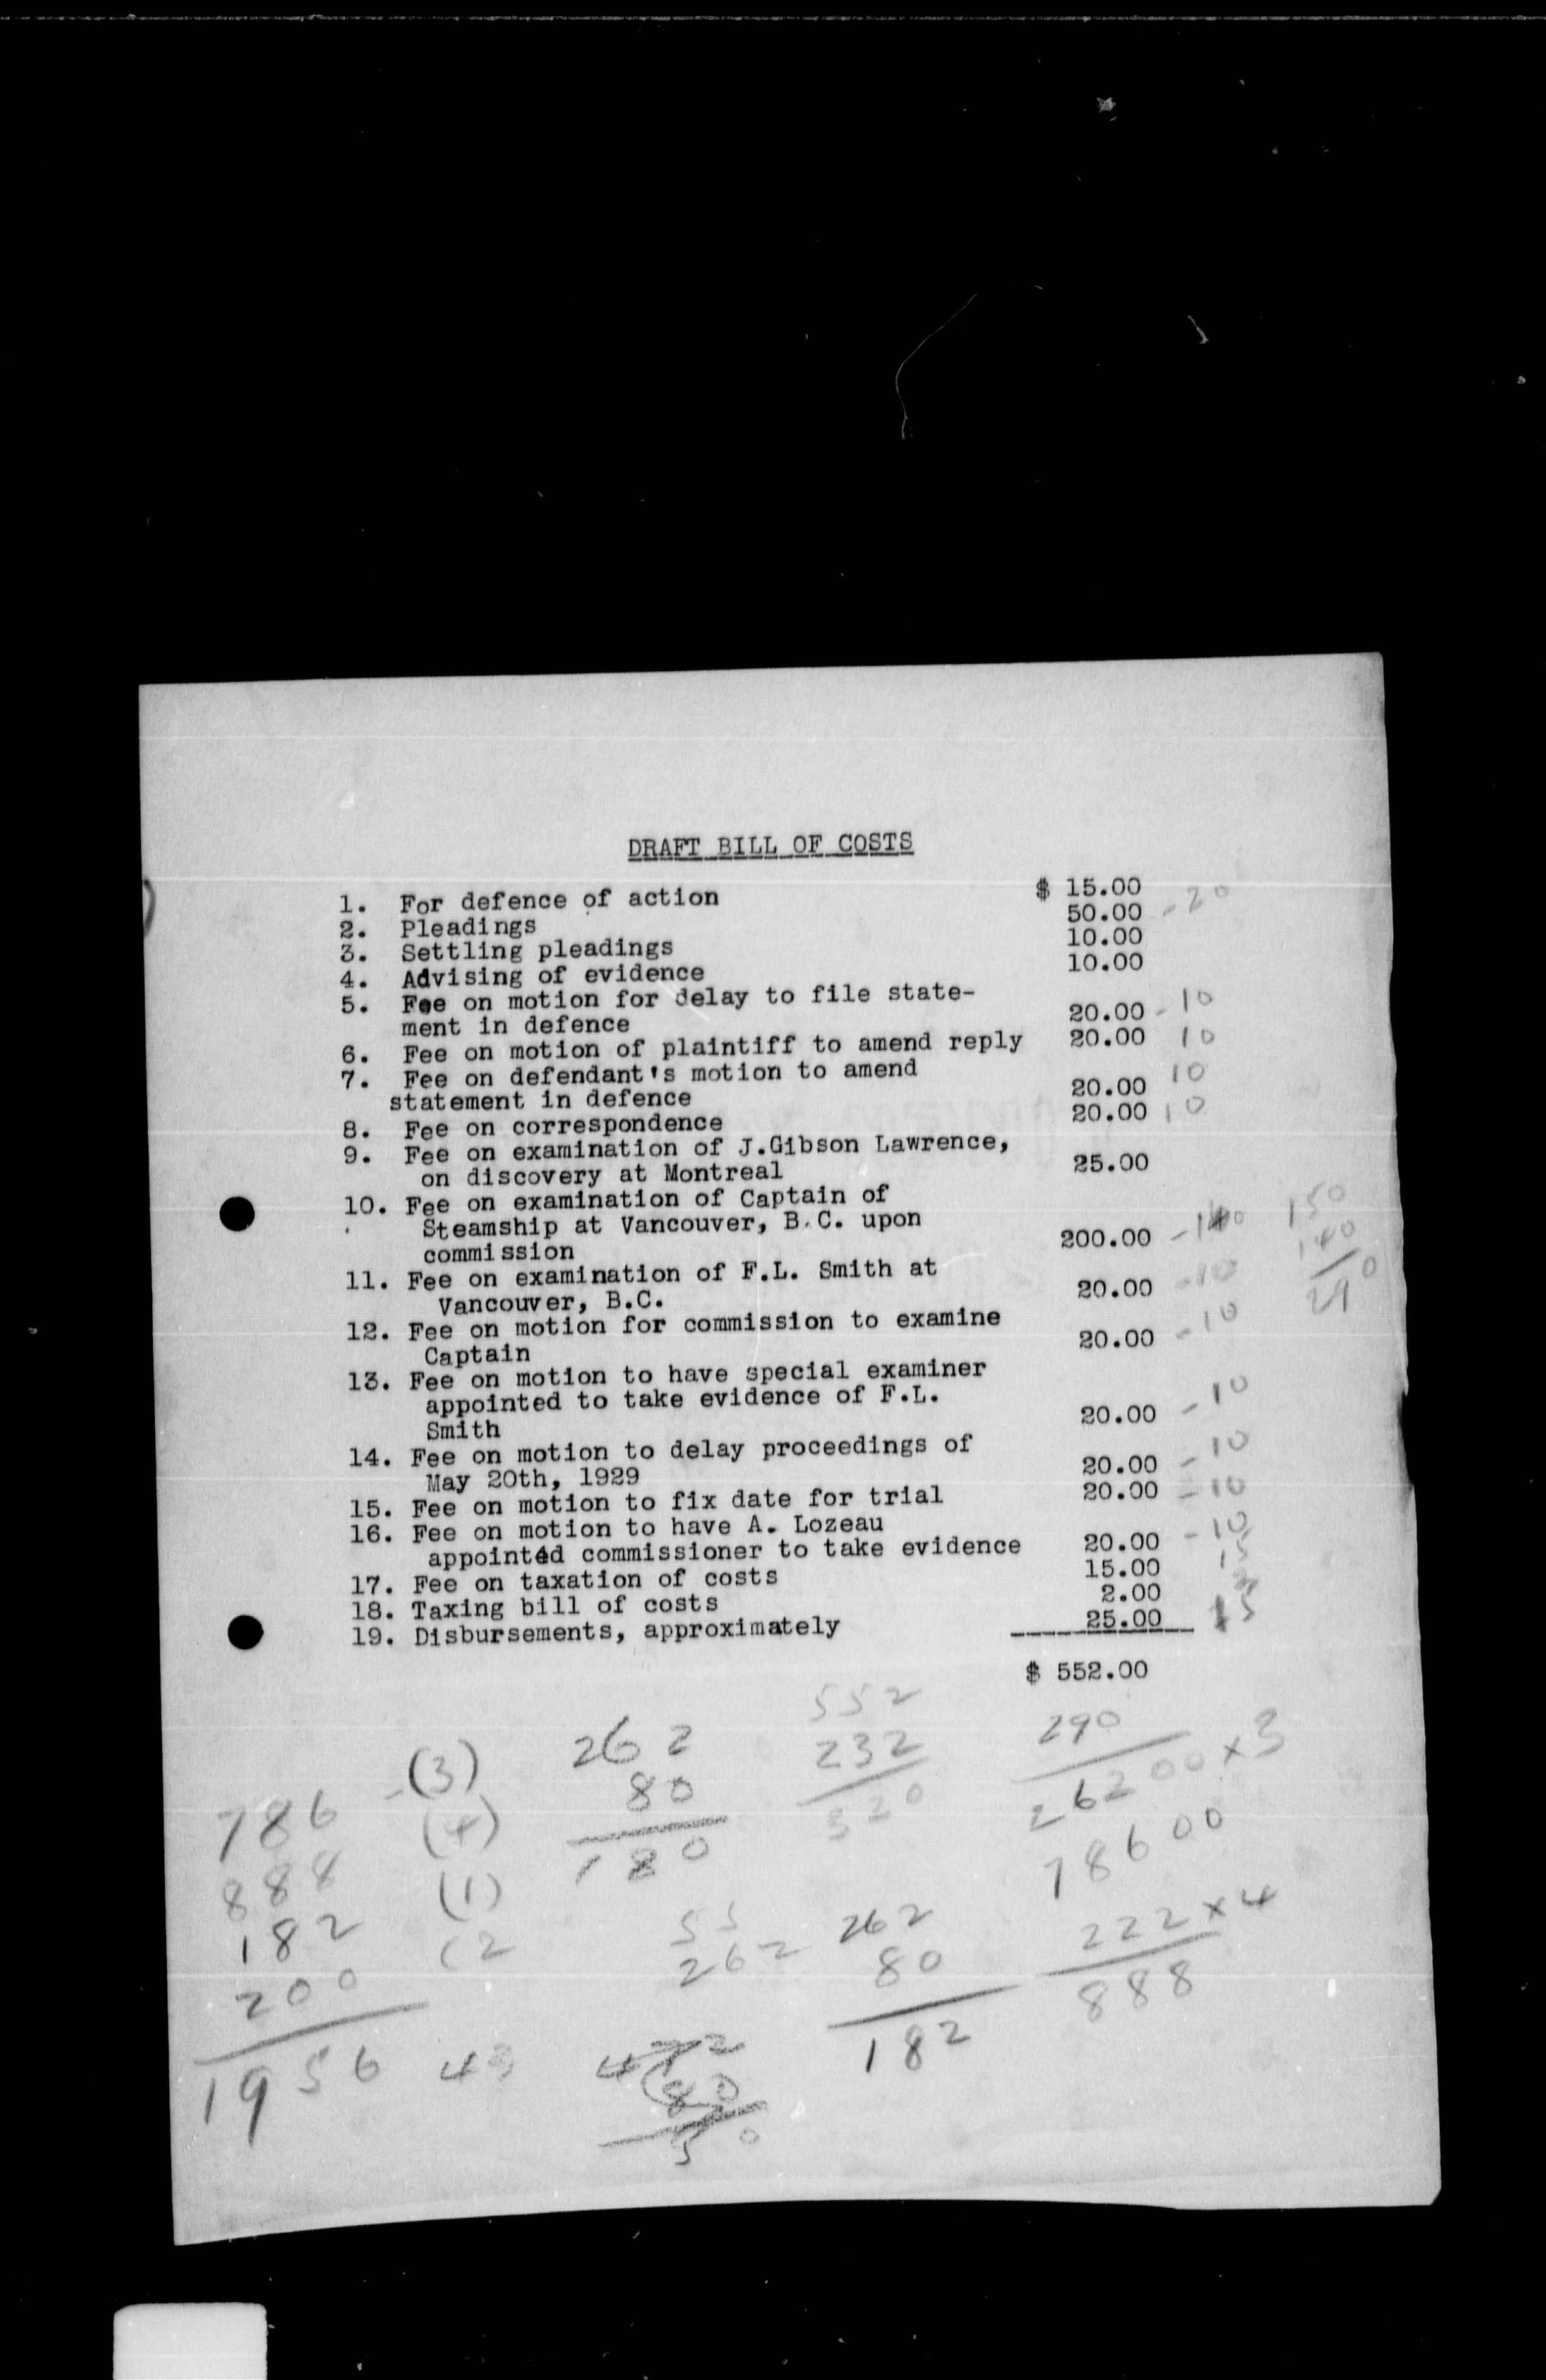 DRAFT BILL OF COSTS
1. For defence of action $ 15.00
2. Pleadings 50.00 - 20
3. Settling pleadings 10.00
4. Advising of evidence 10.00
5. Fee on motion for delay to file state-
ment in defence 20.00 - 10
6. Fee on motion of plaintiff to amend reply 20.00 10
7. Fee on defendant's motion to amend
statement in defence 20.00 10
8. Fee on correspondence 20.00 10
9. Fee on examination of J.Gibson Lawrence,
on discovery at Montreal 25.00
10. Fee on examination of Captain of
Steamship at Vancouver, B.C. upon
commission 200.00 - 140
150
140
11. Fee on examination of F.L. Smith at
Vancouver, B.C. 20.00 - 10
290
12. Fee on motion for commission to examine
Captain 20.00 - 10
13. Fee on motion to have special examiner
appointed to take evidence of F.L.
Smith 20.00 - 10
14. Fee on motion to delay proceedings of
May 20th, 1929 20.00 - 10
15. Fee on motion to fix date for trial 20.00 - 10
16. Fee on motion to have A. Lozeau
appointed commissioner to take evidence 20.00 - 10
17. Fee on taxation of costs 15.00 15
18. Taxing bill of costs 2.00
19. Disbursements, approximately 25.00 15
$ 552.00
552
232
320
290
26200 x 3
78600
262
80
180
786 - (3)
888 (4)
182 (1)
200 (2
1956
55
262
262
80
182
222 x 4
888